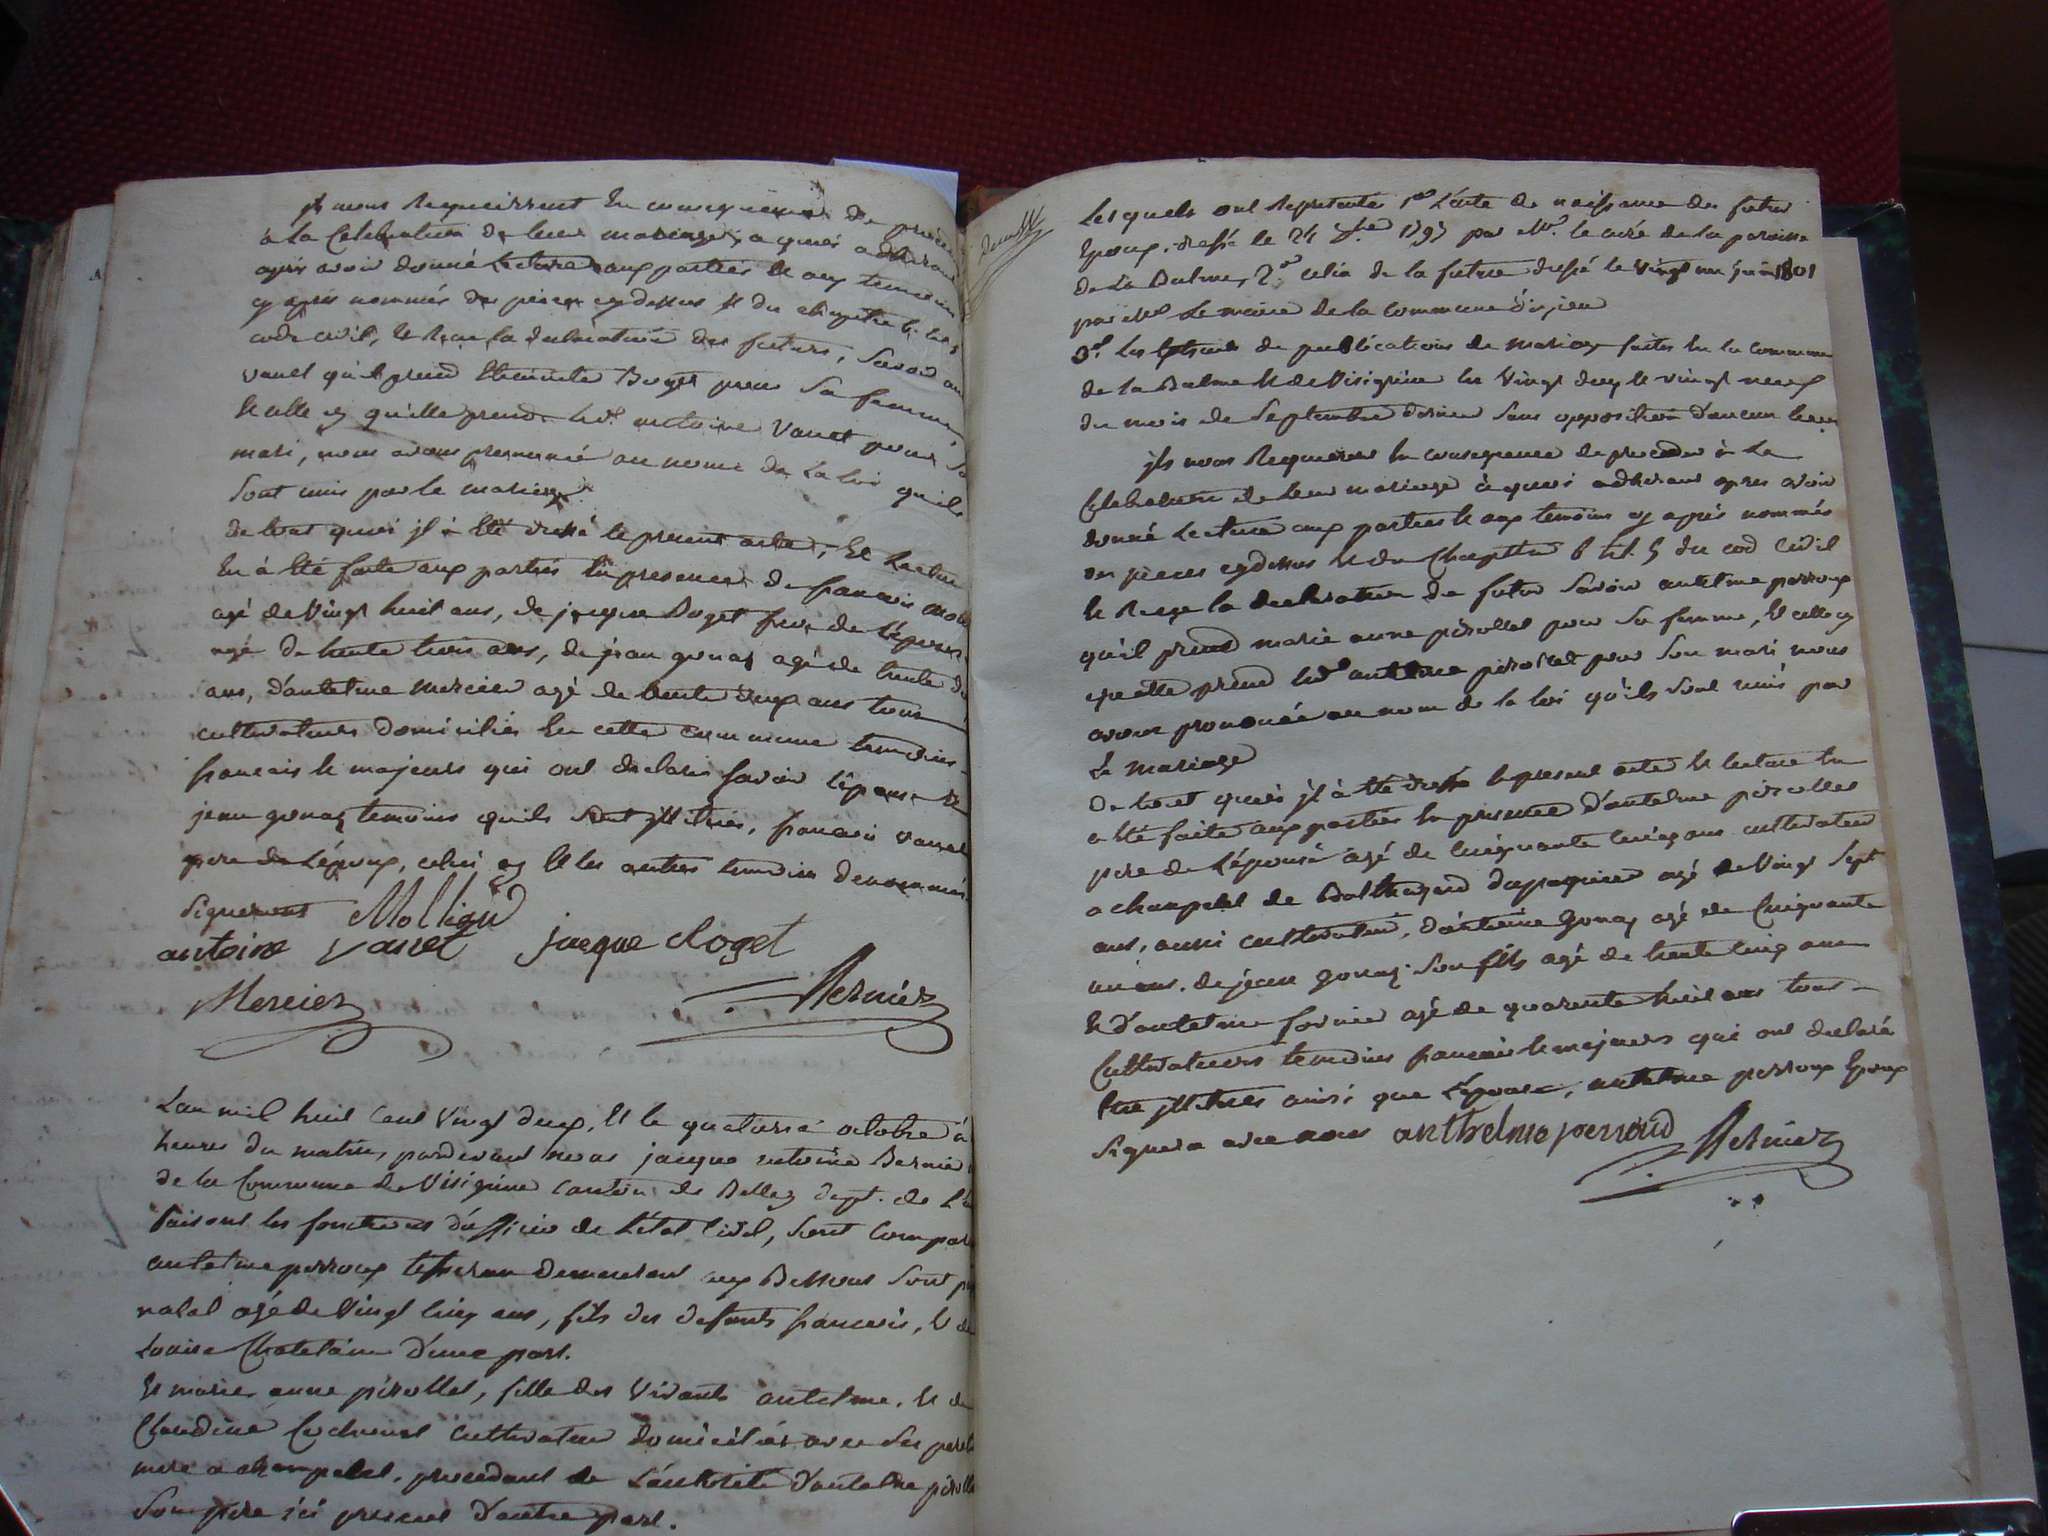 jls nous Requeissent En consequence de proceder
à la Celebration de leur mariage, a quoi adherant
après avoir donné Lecture aux parties & aux temoins
cy après nommés des pieces cydessus & du chapitre 6
code civil, & Reçu la declaration des futurs, Savoir
vanet qu'il prend Etiennete Buget pour Sa femme,
& elle cy qu'elle prend led. antoine Vanet pour So
mari, nous avons prononcé au nom de la Loi quils
Sont unis par le mariage
de tout quoi jl à Eté dressé le present acte, Et Lecture
En à Eté faite aux parties En presence de francois
agé de Vingt huit ans, de jacque Buget frere de L'épouse
agé de trente trois ans, de jean gonaz agé de trente
ans, d'antelme Mercier agé de trente deux ans tous
cultivateurs domiciliés En cette commune temoins
francais & majeurs qui ont declaré Savoir L'épouse &
jean gonaz temoins quils Sont jllitrés, francois vanet
pere de L'époux, celui cy & les autres temoins denommés
Signeront Mollign
antoine Vanet jacque Boget
Mercier Bernier
L'an mil huit Cent Vingt deux, Et le quatorze octobre à
heures du matin, pardevant nous jacque antoine Bernier
de la Commune de Virignin canton de Belley dept. de L'a
faisant les fonctions d'officier de L'état Civil, Sont Compar
antelme perroux tisseran demeurant aux Bessons Sont
natal agé de Vingt cinq ans, fils des defunts francois, & de
Louise Chatelain d'une part.
Et marie anne pirollet, fille des Vivants antelme, & de
Claudine cultivateur domiciliés avec Ses pere &
mere a champtel, procedant de L'autorité d'antelme piroll
Son pere ici present d'autre part.
Les quels ont Representé 1° L'acte de naissance du futur
Epoux, dressé le 24 1797 par Mr. le curé de la paroisse
de La Balme, 2° celui de la future dressé le vingt un juin 1801
par Mr Le maire de la Commune
3° Les Extraits de publications de mariage faites En la Commune
de la Balme & de Virignin les Vingt deux & vingt neuf
du mois de Septembre dernier Sans opposition d'aucun
jls nous Requerent En consequence de proceder à La
Celebration de Leur mariage à quoi adherant après avoir
donné Lecture aux parties & aux temoins cy après nommés
des pieces cydessus & du Chapitre 6 tit. 5 du cod Civil
& Reçu la declaration du futur Savoir antelme perroux
qu'il prend marie anne pirollet pour Sa femme, & celle cy
qu'elle prend led. antelme pour Son mari nous
avons prononcé au nom de la loi qu'ils Sont unis par
Le mariage
De tout quoi jl à Eté dressé le present acte & lecture En
a Eté faite aux parties En presence d'antelme pirollet
pere de L'épouse agé de Cinquante ans cultivateur
a champtel de Balthazard dupasquier agé de Vingt Sept
ans, aussi cultivateur, d'antoine Gonaz agé de Cinquante
un ans. de jean gonaz Son fils agé de trente cinq ans
& d'antelme fornier agé de quarante huit ans tous
Cultivateurs temoins francais & majeurs qui ont declaré
Etre jllitrés ainsi que L'épouse, antelme perroux Epoux
Signera avec nous anthelme perroud
Bernier